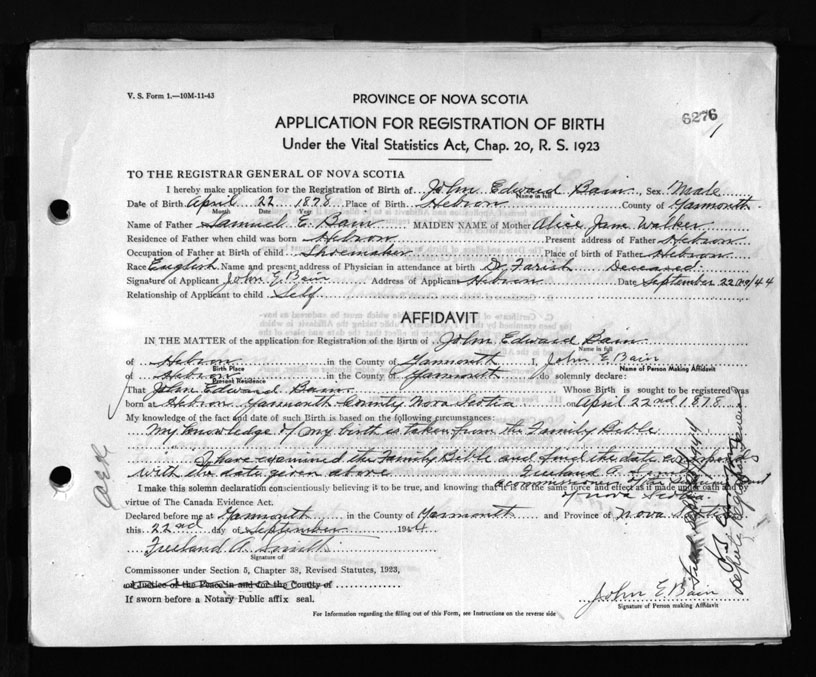 V. S. Form 1.—10M-11-43
PROVINCE OF NOVA SCOTIA
6276
1
APPLICATION FOR REGISTRATION OF BIRTH
Under the Vital Statistics Act, Chap. 20, R. S. 1923
TO THE REGISTRAR GENERAL OF NOVA SCOTIA
I hereby make application for the Registration of Birth of John Edward Bain, Sex Male
Name in full
Date of Birth April 22 1878 Place of Birth Hebron County of Yarmouth
Month Date Year
Name of Father Samuel E. Bain MAIDEN NAME of Mother Alice Jane Walker
Residence of Father when child was born Hebron Present address of Father Hebron
Occupation of Father at Birth of child Shoemaker Place of birth of Father Hebron
Race English Name and present address of Physician in attendance at birth Dr Farish Deceased
Signature of Applicant John E Bain Address of Applicant Hebron Date September 22nd/44
Relationship of Applicant to child Self
AFFIDAVIT
IN THE MATTER of the application for Registration of the Birth of John Edward Bain
Name in full
of Hebron in the County of Yarmouth I, John E Bain
Birth Place Name of Person Making Affidavit
of Hebron in the County of Yarmouth do solemnly declare:
Present Residence
That John Edward Bain Whose Birth is sought to be registered was
born at Hebron Yarmouth County Nova Scotia on April 22nd 1878
My knowledge of the fact and date of such Birth is based on the following circumstances:
My knowledge of my birth is taken from the Family Bible
I have examined the Family Bible and find the date corresponds
with the date given above Freeland A. Smith
a commissioner of the Supreme Court
I make this solemn declaration conscientiously believing it to be true, and knowing that it is of the same force and effect as if made under oath and by
of Nova Scotia
virtue of The Canada Evidence Act.
Declared before me at Yarmouth in the County of Yarmouth and Province of Nova Scotia
this 22nd day of September 1944
Freeland A. Smith
Signature of
Commissioner under Section 5, Chapter 38, Revised Statutes, 1923,
or Justice of the Peace in and for the County of
If sworn before a Notary Public affix seal.
John E Bain
Signature of Person making Affidavit
For Information regarding the filling out of this Form, see Instructions on the reverse side
Deputy Registrar General